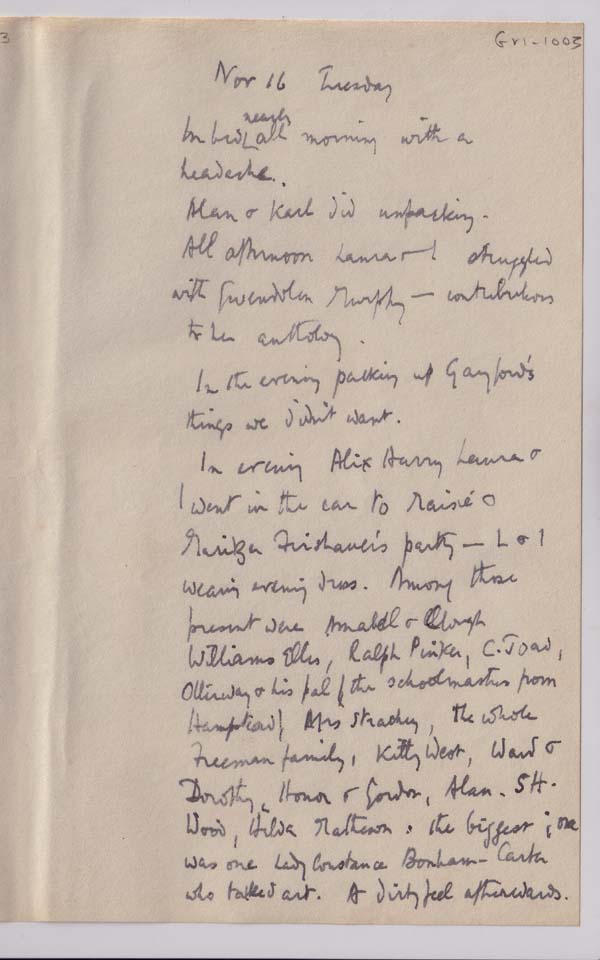 3
GV1-1003
Nov 16 Tuesday
In bed nearly all morning with a
headache.
Alan & Karl did unpacking.
All afternoon Laura & I struggled
with Gwendolen Murphy — contributions
to her anthology.
In the evening packing up Gayford's
things we didn't want.
In evening Alix Harry Laura &
I went in the car to Maisie &
party — L & I
wearing evening dress. Among those
present were Amabel & Clough
Williams Ellis, Ralph Pinker, C. Joad,
& his pal / the schoolmaster from
Hampstead / Mrs Strachey, the whole
Freeman family, Kitty West, Ward &
Dorothy, Honor & Gordon, Alan. SH.
Wood, Hilda Matheson. the biggest ; one
was one Lady Constance Bonham-Carter
who talked art. A dirty feel afterwards.